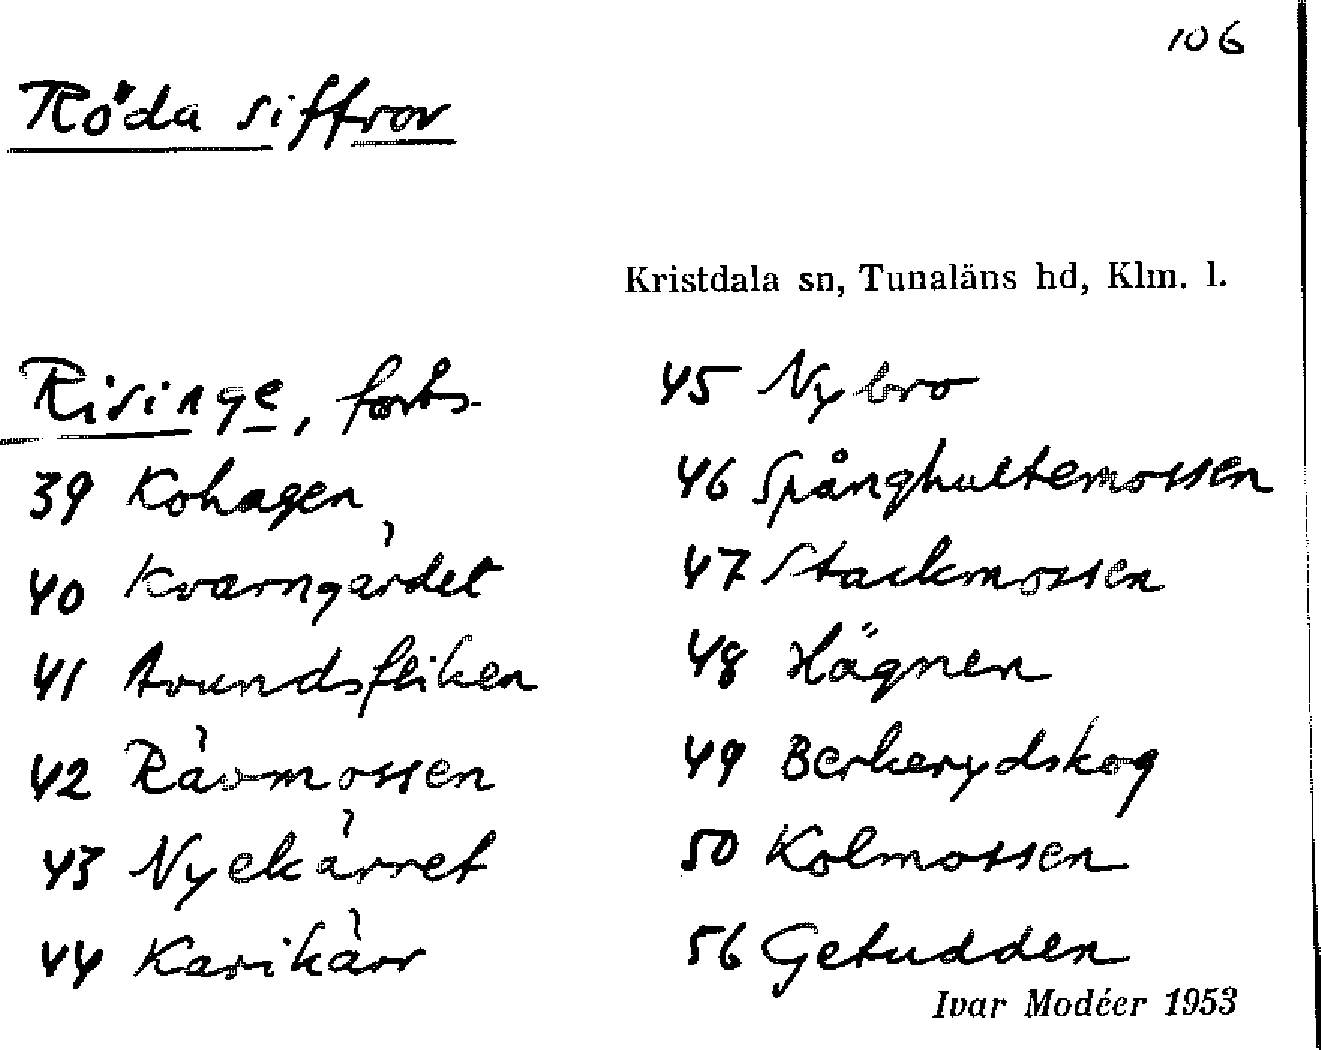 106
Röda siffror
Kristdala sn, Tunaläns hd, Klm. l.
Risinge, forts.
39 Kohagen
40 Kvarngärdet
41 Avundsfliken
42 Rävmossen
43 Nyekärret
44 Karikärr
45 Nybro
46 Spånghultemossen
47 Stackmossen
48 Hägnen
49 Berkerydskog
50 Kolmossen
56 Getudden
Ivar Modéer 1953